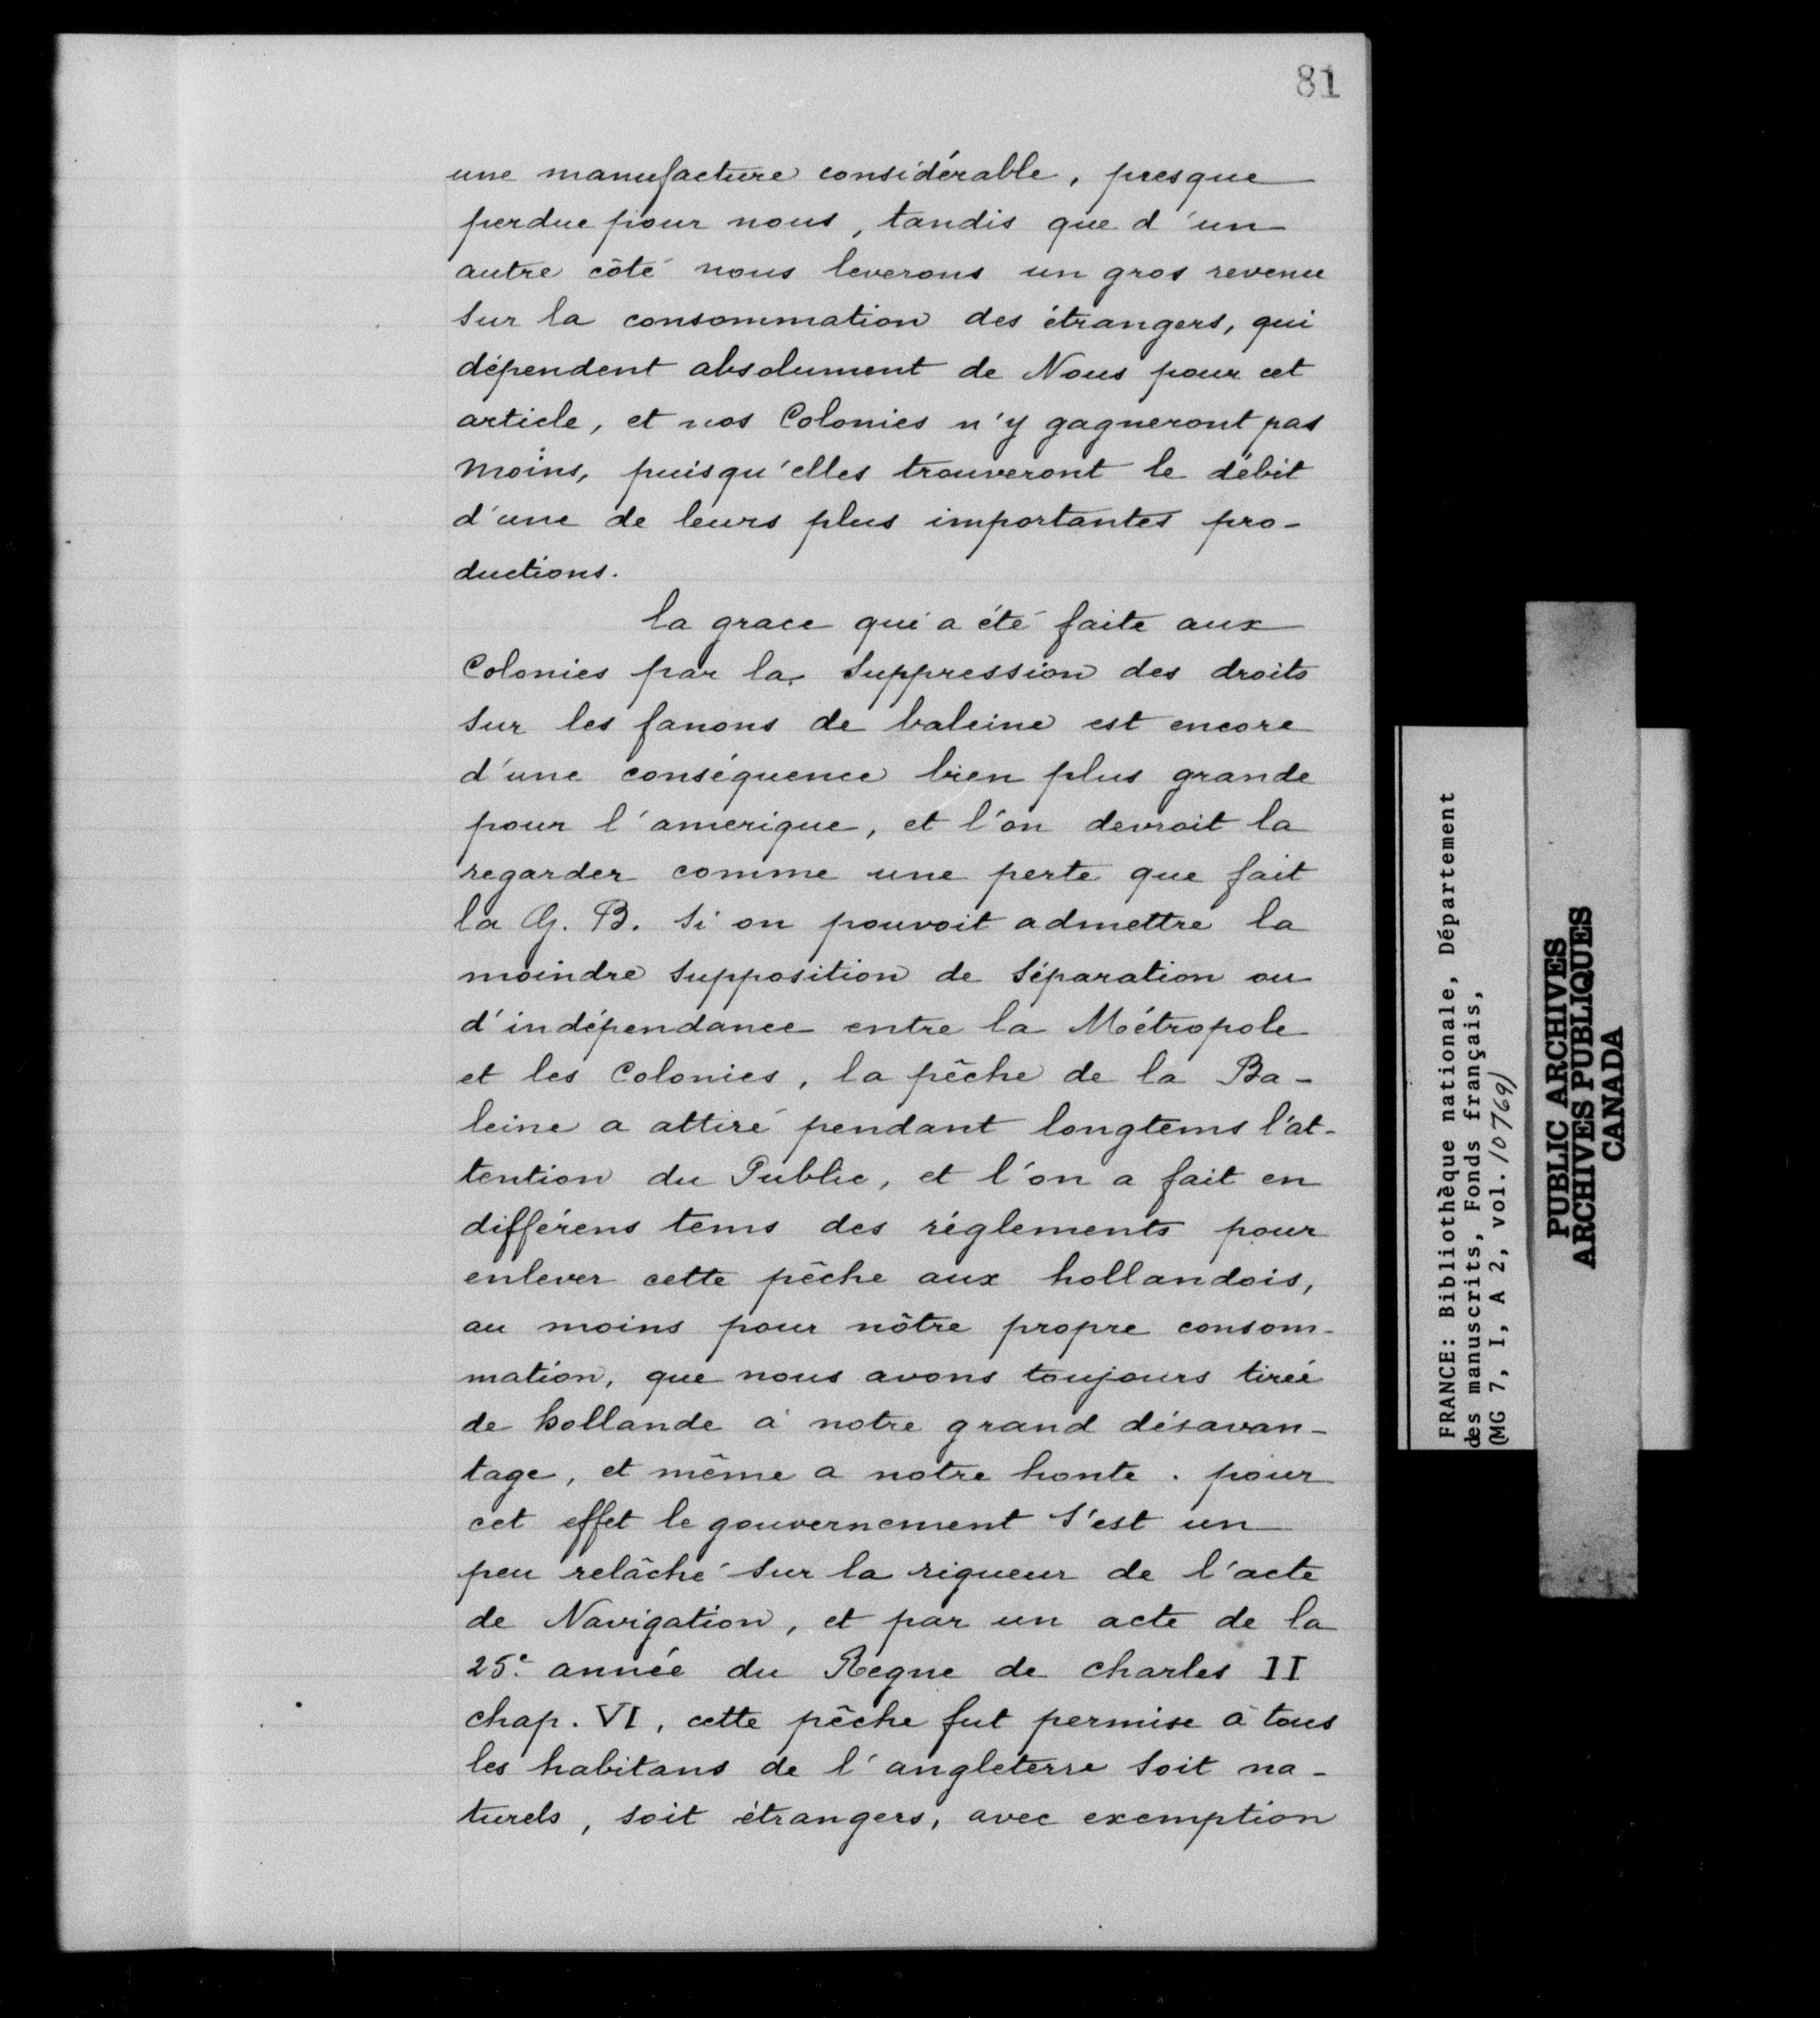 81
une manufacture considérable, presque
perdue pour nous, tandis que d'un
autre côté nous leverons un gros revenu
sur la consommation des étrangers, qui
dépendent absolument de Nous pour cet
article, et nos Colonies n'y gagneront pas
moins, puisqu'elles trouveront le débit
d'une de leurs plus importantes pro-
ductions.
la grace qui a été faite aux
Colonies par la suppression des droits
sur les fanons de baleine est encore
d'une conséquence bien plus grande
pour l'amerique, et l'on devroit la
regarder comme une perte que fait
la G. B. si on pouvoit admettre la
moindre supposition de séparation ou
d'indépendance entre la Métropole
et les Colonies, la pêche de la Ba-
leine a attiré pendant longtems l'at-
tention du Public, et l'on a fait en
différens tems des réglements pour
enlever cette pêche aux hollandois,
au moins pour nôtre propre consom-
mation, que nous avons toujours tirée
de hollande à notre grand désavan-
tage, et même a notre honte. pour
cet effet le gouvernement s'est un
peu relâché sur la rigueur de l'acte
de Navigation, et par un acte de la
25e. année du Regne de charles II
chap. VI, cette pêche fut permise à tous
les habitans de l'angleterre soit na-
turels, soit étrangers, avec exemption
FRANCE: Bibliothèque nationale, Département
des manuscrits, Fonds français,
(MG 7, I, A 2, vol. 10769)
PUBLIC ARCHIVES
ARCHIVES PUBLIQUES
CANADA